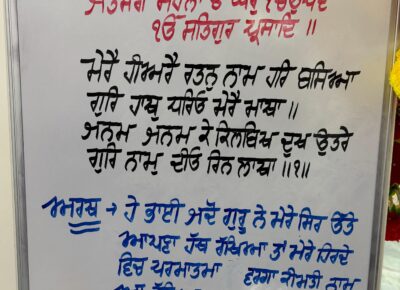 ਜੈਤਸਰੀ ਮਹਲਾ ੪ ਘਰੁ ੧ ਚਉਪਦੇ
ੴ ਸਤਿਗੁਰ ਪ੍ਰਸਾਦਿ ॥
ਮੇਰੈ ਹੀਅਰੈ ਰਤਨੁ ਨਾਮੁ ਹਰਿ ਬਸਿਆ
ਗੁਰਿ ਹਾਥੁ ਧਰਿਓ ਮੇਰੈ ਮਾਥਾ ॥
ਜਨਮ ਜਨਮ ਕੇ ਕਿਲਬਿਖ ਦੁਖ ਉਤਰੇ
ਗੁਰਿ ਨਾਮੁ ਦੀਓ ਰਿਨੁ ਲਾਥਾ ॥੧॥
ਅਰਥ → ਹੇ ਭਾਈ ਜਦੋਂ ਗੁਰੂ ਨੇ ਮੇਰੇ ਸਿਰ ਉੱਤੇ
ਆਪਣਾ ਹੱਥ ਰੱਖਿਆ ਤਾਂ ਮੇਰੇ ਹਿਰਦੇ
ਵਿਚ ਪਰਮਾਤਮਾ ਵਰਗਾ ਕੀਮਤੀ ਨਾਮ